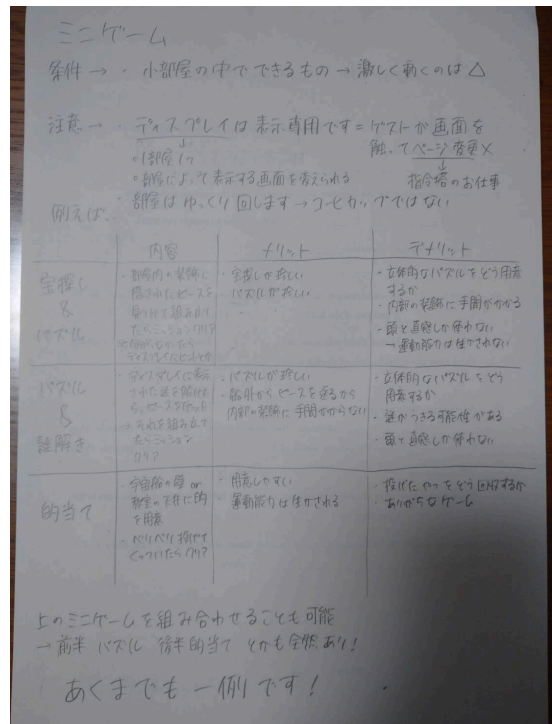 ミニゲーム
条件 → ・ 小部屋の中でできるもの → 激しく動くのは △
注意 → ・ ディスプレイは表示専用です = ゲストが画面を
触ってページ変更 ×
↓
指令塔のお仕事
↓
○1部屋1つ
○部屋によって表示する画面を変えられる
・ 部屋はゆっくり回します → コーヒーカップではない
例えば…
内容
メリット
デメリット
宝探し
&
パズル
・部屋内の装飾に
隠されたピースを
見つけて組み立て
たらミッションクリア
・宝探しが珍しい
・パズルが珍しい
・立体的なパズルをどう用意
するか
・内部の装飾に手間がかかる
・頭と直感しか使わない
→ 運動能力は生かされない
パズル
&
謎解き
・ディスプレイに表示
された謎を解けた
ら、ピースをゲット
→ それを組み立て
たらミッション
クリア
・パズルが珍しい
・船外からピースを送るから
内部の装飾に手間かからない
・立体的なパズルをどう
用意するか
・謎がつきる可能性がある
・頭と直感しか使わない
的当て
・宇宙船の壁 or
教室の天井に的
を用意
・ベリベリ投げて
くっついたらクリア
・用意しやすい
・運動能力は生かされる
・投げたやつをどう回収するか
・ありがちなゲーム
上のミニゲームを組み合わせることも可能
→ 前半 パズル 後半 的当て とかも全然あり!
あくまでも一例です!